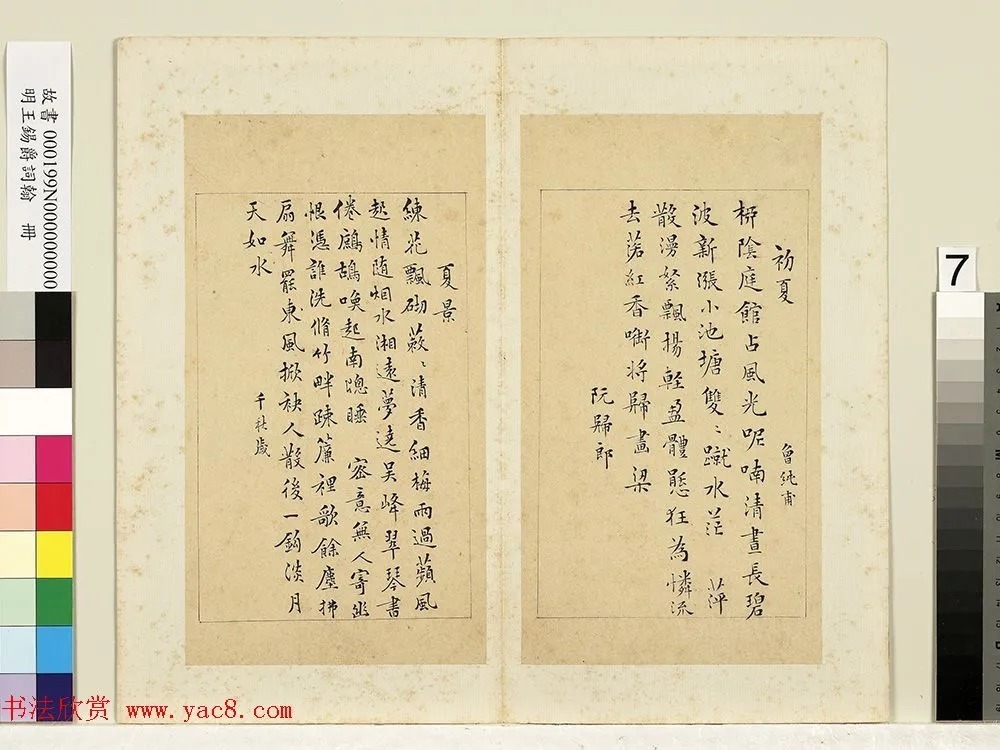 初夏
曾純甫
栁陰庭館占風光呢喃清晝長碧
波新漲小池塘雙〻蹴水茫　萍
散漫絮飄揚輕盈體態狂為憐流
去落紅香㘅將歸畫梁
阮歸郎
夏景
練花飄砌蔌〻清香細梅雨過蘋風
起情随烟水湘遠夢遶吳峰翠琴書
倦鷓鴣喚起南窓睡　密意無人寄幽
恨憑誰洗脩竹畔踈簾裡歌餘塵拂
扇舞罷東風掀袂人散後一鈎淡月
天如水
千秋歲
故書 000199N000000000
明王錫爵詞翰　冊
7
书法欣赏 www.yac8.com